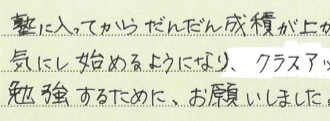 塾に入ってからだんだん成績が上が
気にし始めるようになり、クラスアッ
勉強するために、お願いしました。